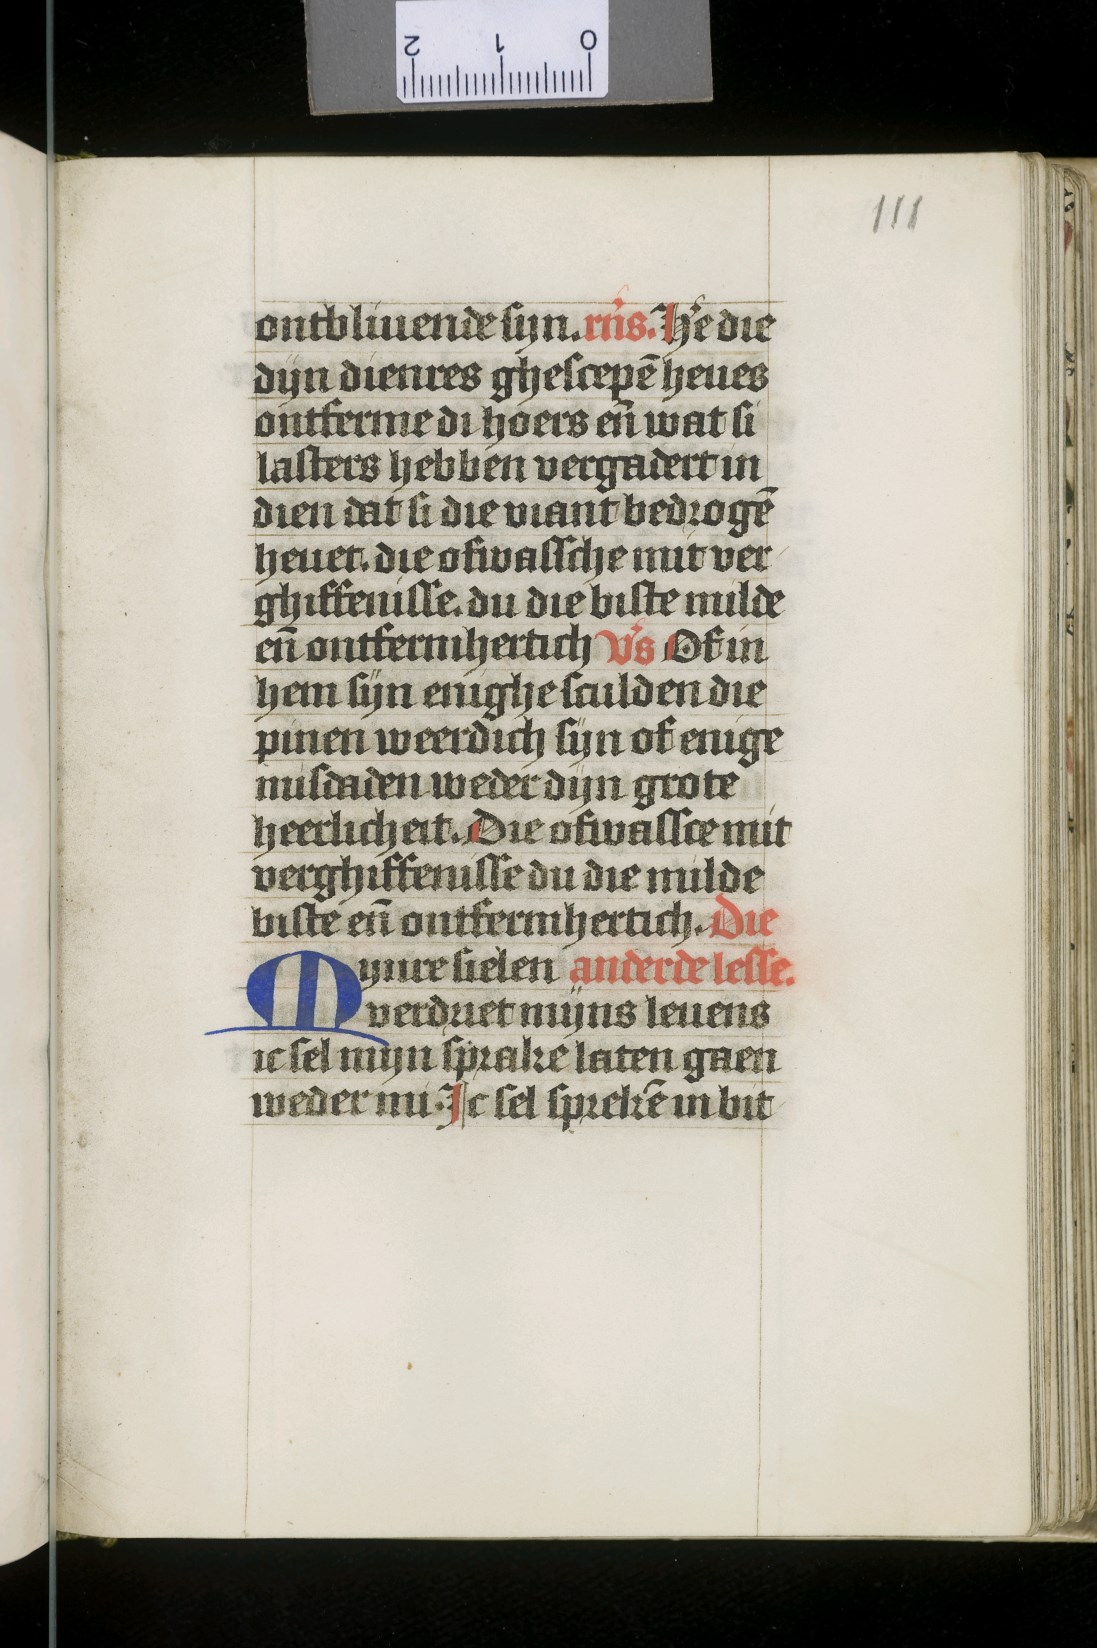 2 1 0
111
ontbliuende sijn. rn̄s. He᷒ die
dijn dienres ghescepē heues
ontferme di hoers en̄ wat si
lasters hebben vergadert in
dien dat si die viant bedrogē
heuet. die ofwassche mit ver
ghiffenisse. du die biste milde
en̄ ontfermhertich v͛s Of in
hem sijn enighe sculden die
pinen weerdich sijn of enige
misdaden weder dijn grote
heerlicheit. Die ofwassce mit
verghiffenisse du die milde
biste en̄ ontfermhertich. Die
Mynre sielen anderde lesse.
verdriet mijns leuens
ic sel mijn sprake laten gaen
weder mi. Ic sel sprekē in bit